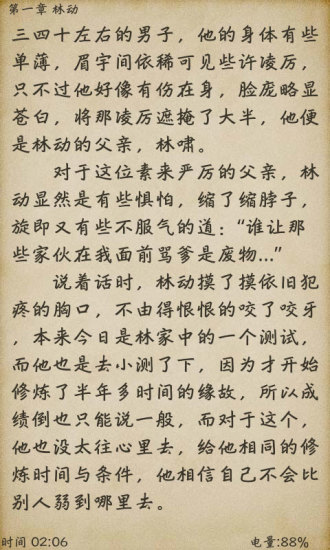 第一章 林动
三四十左右的男子，他的身体有些
单薄，眉宇间依稀可见些许凌厉，
只不过他好像有伤在身，脸庞略显
苍白，将那凌厉遮掩了大半，他便
是林动的父亲，林啸。
对于这位素来严厉的父亲，林
动显然是有些惧怕，缩了缩脖子，
旋即又有些不服气的道：“谁让那
些家伙在我面前骂爹是废物…”
说着话时，林动摸了摸依旧犯
疼的胸口，不由得恨恨的咬了咬牙
，本来今日是林家中的一个测试，
而他也是去小测了下，因为才开始
修炼了半年多时间的缘故，所以成
绩倒也只能说一般，而对于这个，
他也没太往心里去，给他相同的修
炼时间与条件，他相信自己不会比
别人弱到哪里去。
时间 02:06 电量:88%